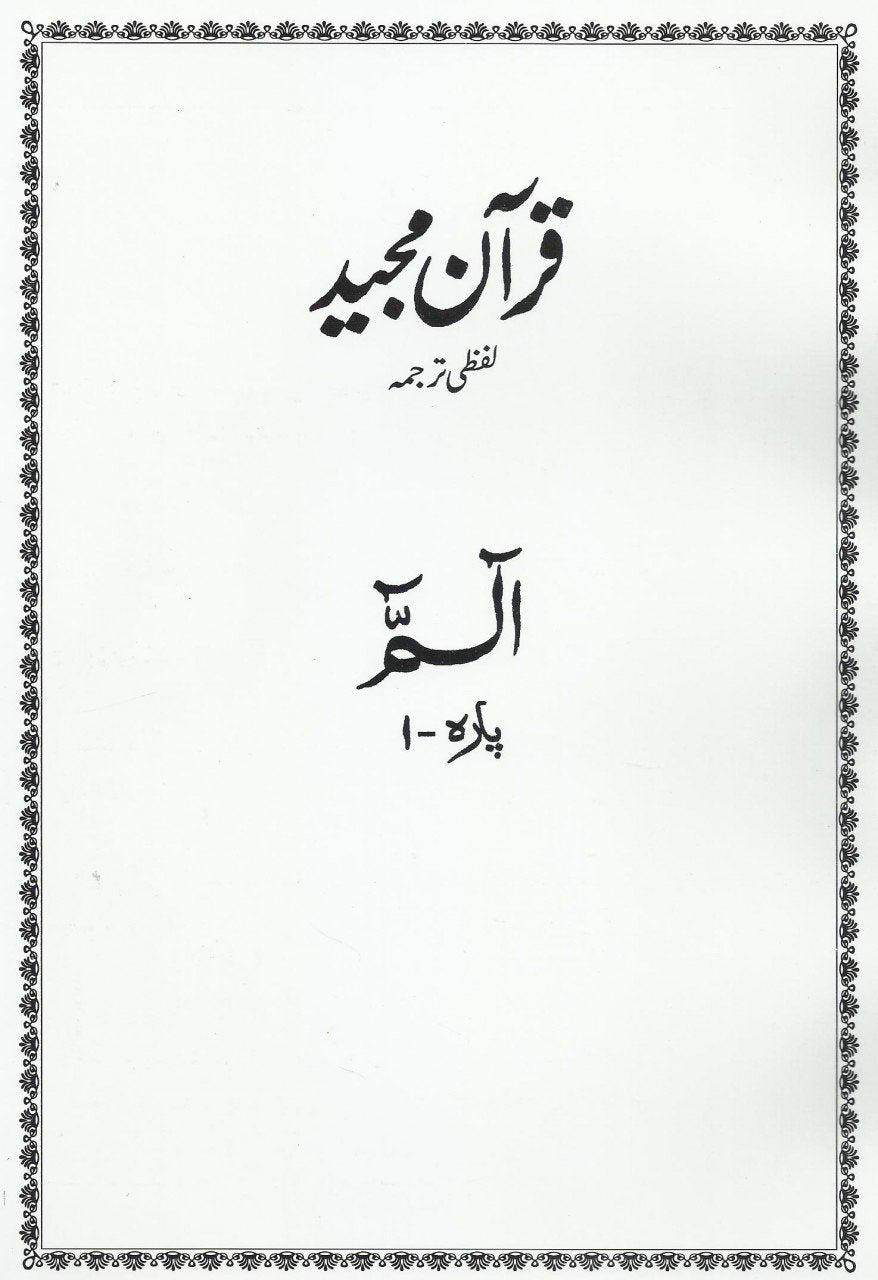 قرآن مجید
لفظی ترجمہ
آلـمّٓ
پارہ - ۱